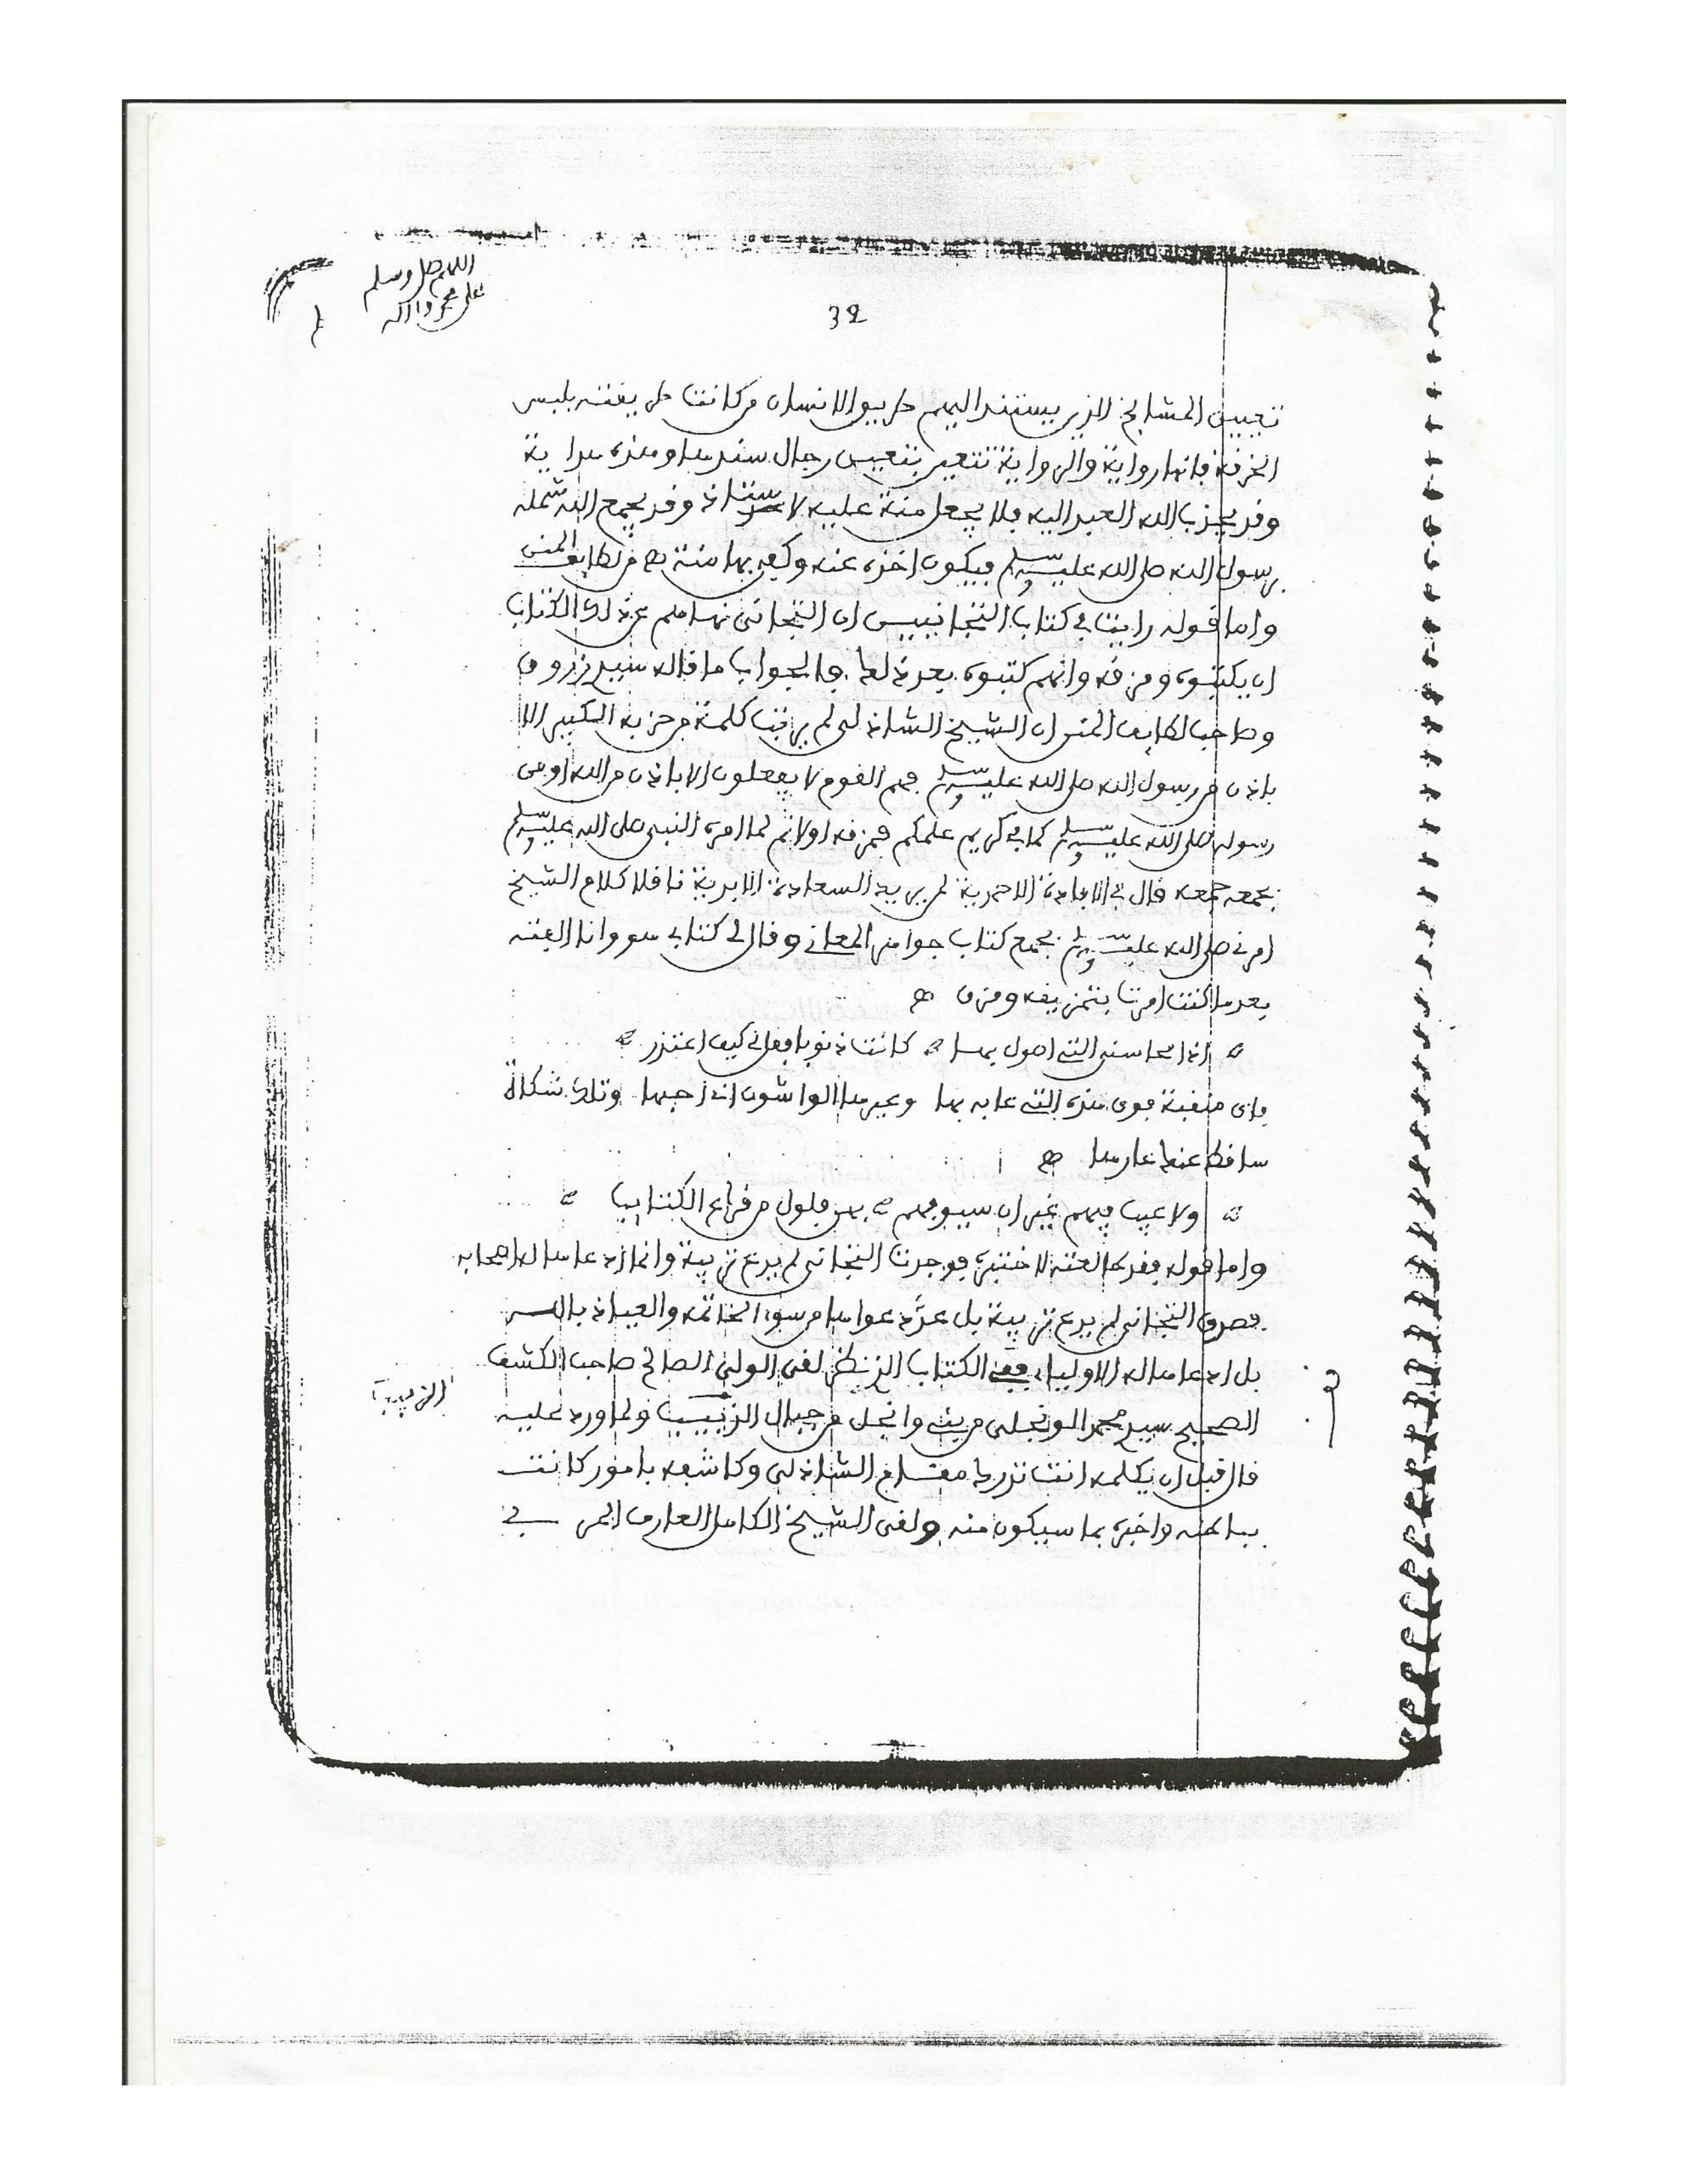 اللهم صل وسلم
على محمد وآله
32
تعيين المشايخ الذين يستند اليهم طريق الانسان من كانت طريقته بلبس
الخرقة فانها رواية والرواية تتعين بتعيين رجال سندها وهذه هداية
وقد يجذب الله العبد اليه فلا يجعل منة عليه لاستاذ وقد يجمع الله شمله
برسول الله صلى الله عليه وسلم فيكون اخذه عنه وكفى بها منة اهـ من لطايف المنن
واما قوله رايت في كتاب التجانيين ان التجاني نهاهم عن ذلك الكتاب
ان يكتبوه ومزقه وانهم كتبوه بعد ذلك فالجواب ما قاله سيدي زروق
وصاحب لطايف المنن ان الشيخ الشاذلي لم يرتب كلمة من حزبه الكبير الا
باذن من رسول الله صلى الله عليه وسلم فهم القوم لا يفعلون الا باذن من الله او من
رسوله صلى الله عليه وسلم كما في كريم علمكم فمزقه اولا ثم لما امره النبي صلى الله عليه وسلم
بجمعه جمعه قال في الافادة الاحمدية لمريد السعادة الابدية ناقلا كلام الشيخ
امرني صلى الله عليه وسلم بجمع كتاب جواهر المعاني وقال لي كتابي هو وانا الفته
بعد ما كنت امرت بتمزيقه ومزق اهـ
اذا محاسني التي اصول بها كانت ذنوبا فقل لي كيف اعتذر
فاي منقبة فوق هذه التي عابه بها وعيرها الواشون اني احبها وتلك شكاة
ساقط عنها عارها اهـ
ولا عيب فيهم غير ان سيوفهم بهن فلول من قراع الكتايب
واما قوله فقد طالعته لاختبره فوجدت التجاني لم يدع تربية وانما ادعاها له اصحابه
فصدق التجاني لم يدع تربية بل عدّ دعواها من سوء الخاتمة والعياذ بالله
بل ادعاها له الاولياء ففي الكتاب الذي نظر لقي الولي الصالح صاحب الكشف
الصحيح سيدي محمد الونجلي من بني وانجل من جبال الزبيب ولما ورد عليه
الزبيب
قال قبل ان يكلمه انت تدرك مقام الشاذلي وكاشفه بامور كانت
بباطنه واخبره بما سيكون منه ولقي الشيخ الكامل العارف